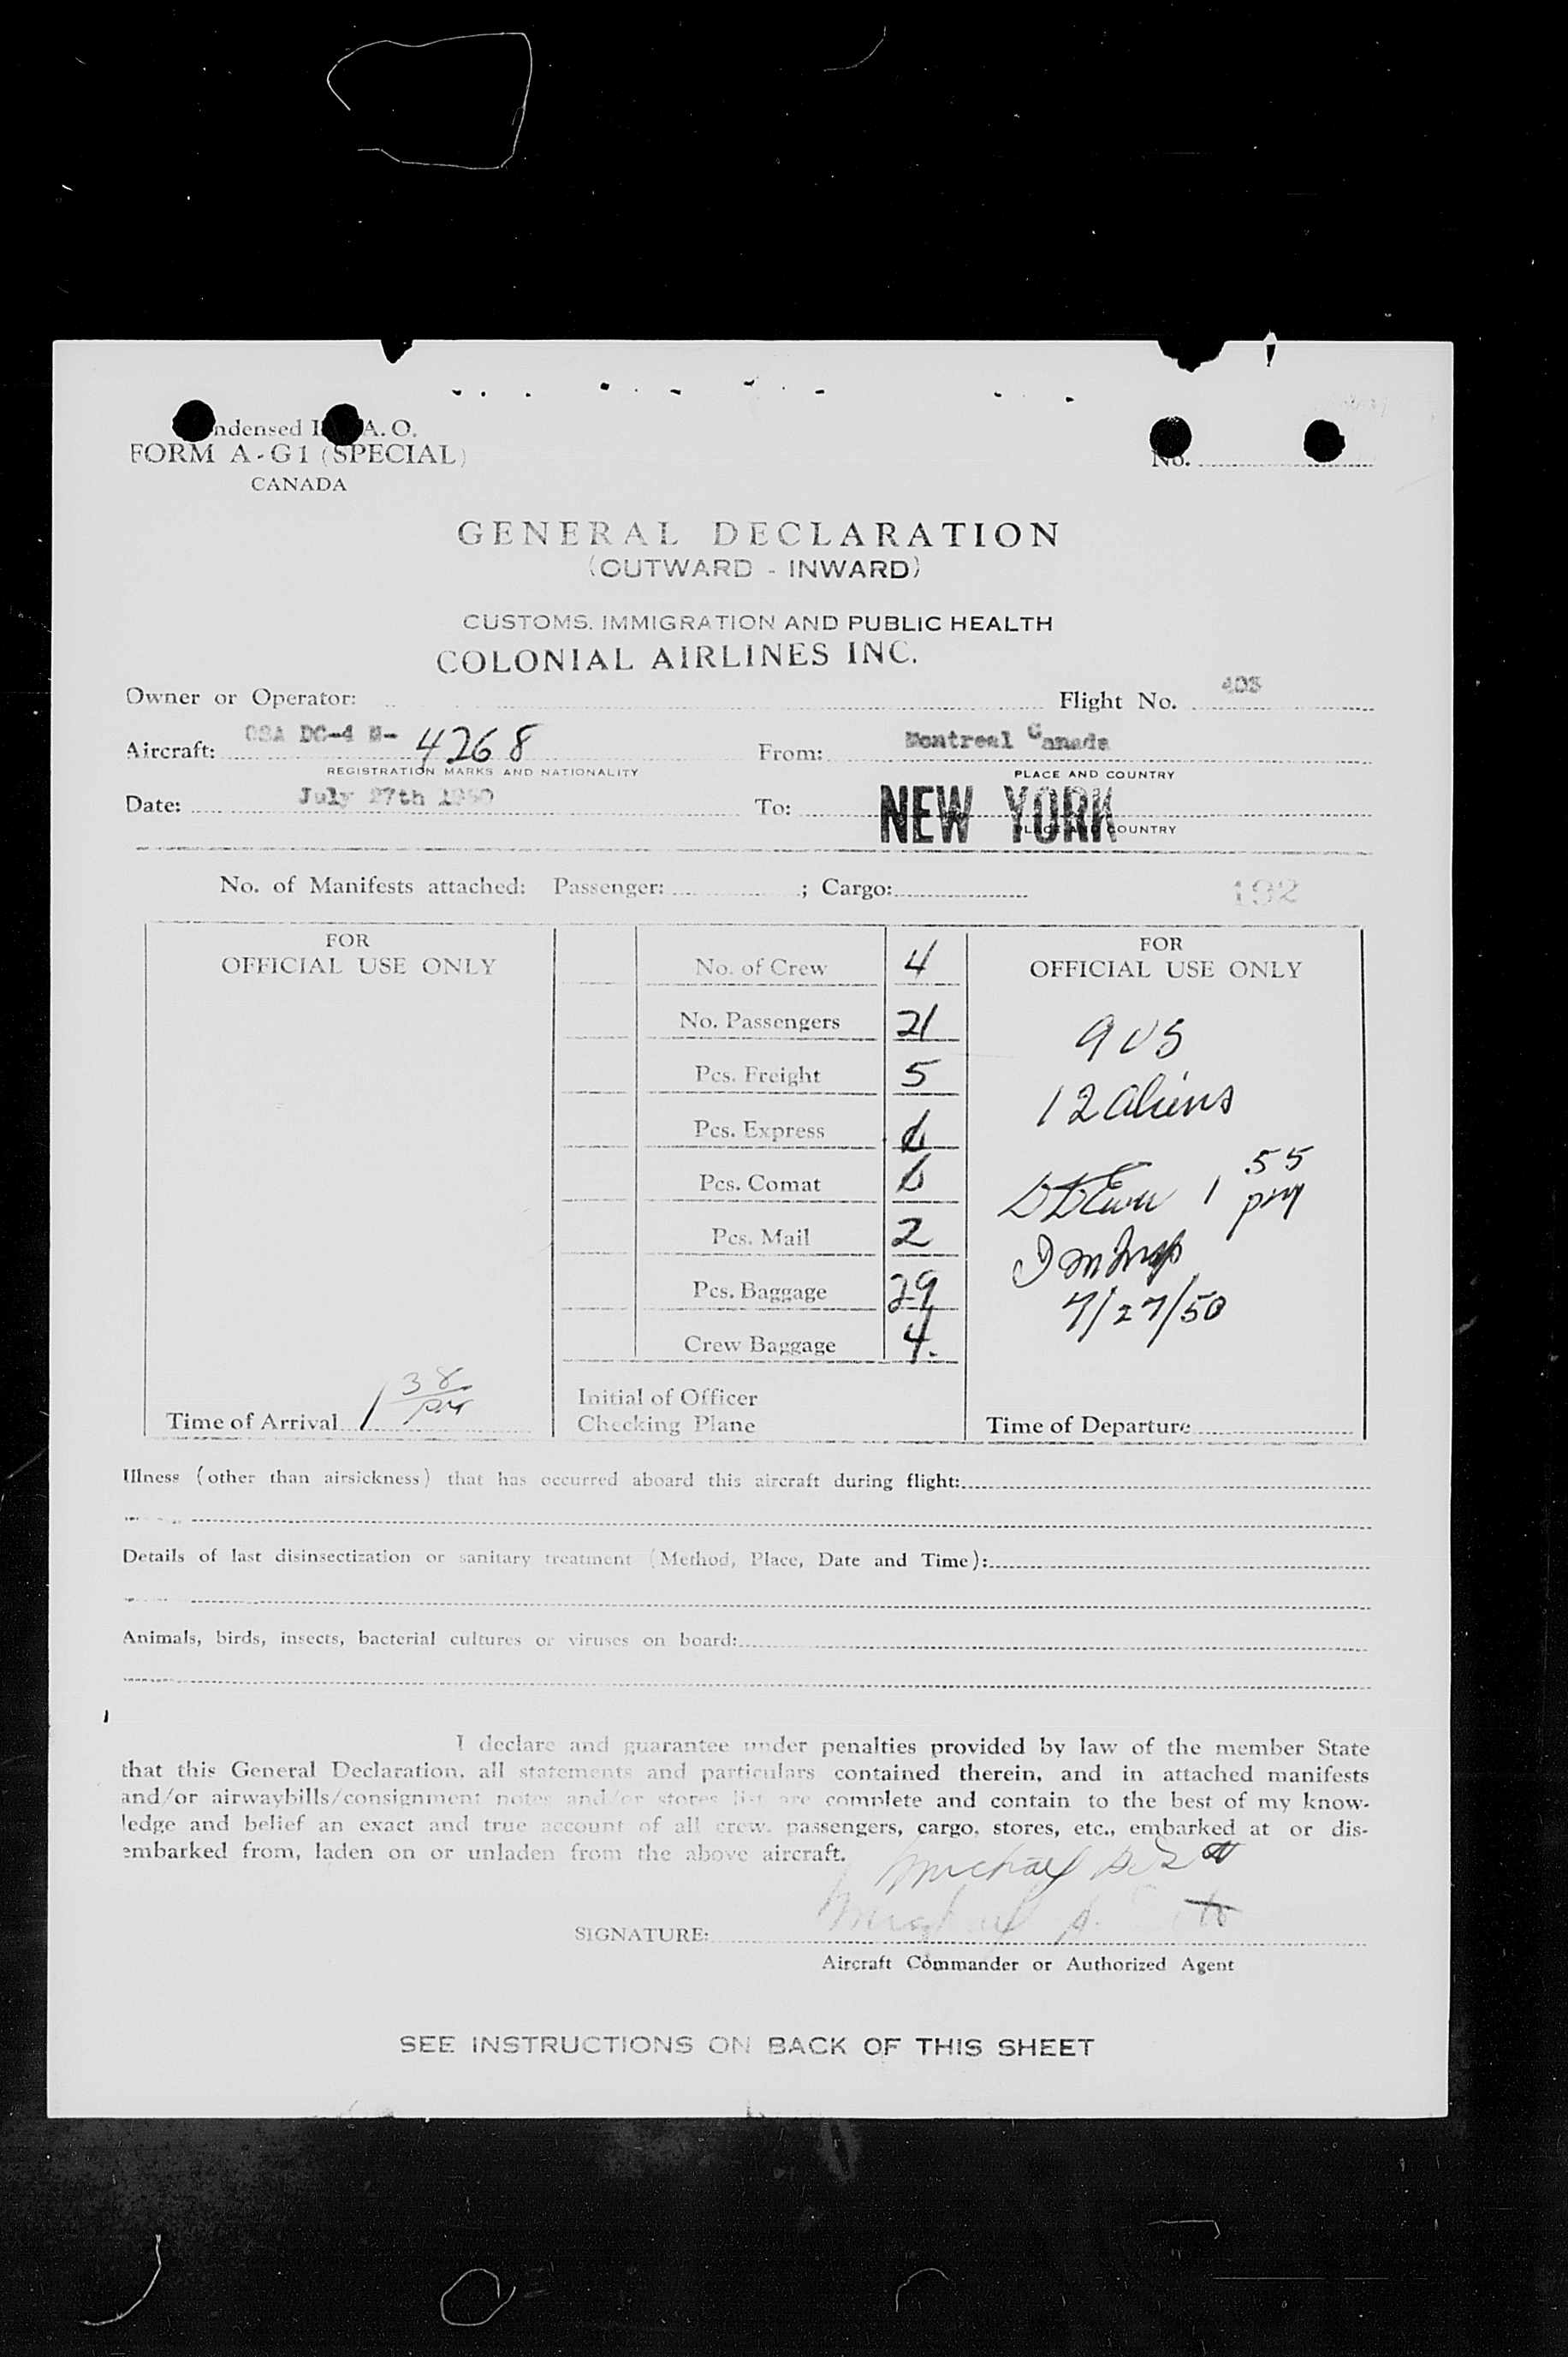 ndensed I A. O.
FORM A-G1 (SPECIAL)
CANADA
No.
GENERAL DECLARATION
(OUTWARD - INWARD)
CUSTOMS, IMMIGRATION AND PUBLIC HEALTH
COLONIAL AIRLINES INC.
Owner or Operator: Flight No. 403
Aircraft: DC-4 N- 4268 From: Montreal Canada
REGISTRATION MARKS AND NATIONALITY PLACE AND COUNTRY
Date: July 27th 1950 To: NEW YORK
PLACE AND COUNTRY
No. of Manifests attached: Passenger: ; Cargo: 192
FOR
OFFICIAL USE ONLY
No. of Crew 4
No. Passengers 21
Pcs. Freight 5
Pcs. Express
Pcs. Comat
Pcs. Mail 2
Pcs. Baggage 29
Crew Baggage 4.
Time of Arrival 1 38 PM
Initial of Officer
Checking Plane
FOR
OFFICIAL USE ONLY
9 US
12 aliens
1 55 pm
7/27/50
Time of Departure
Illness (other than airsickness) that has occurred aboard this aircraft during flight:
Details of last disinsectization or sanitary treatment (Method, Place, Date and Time):
Animals, birds, insects, bacterial cultures or viruses on board:
I declare and guarantee under penalties provided by law of the member State
that this General Declaration, all statements and particulars contained therein, and in attached manifests
and/or airwaybills/consignment notes and/or stores list are complete and contain to the best of my know-
ledge and belief an exact and true account of all crew, passengers, cargo, stores, etc., embarked at or dis-
embarked from, laden on or unladen from the above aircraft.
Michael
SIGNATURE:
Aircraft Commander or Authorized Agent
SEE INSTRUCTIONS ON BACK OF THIS SHEET